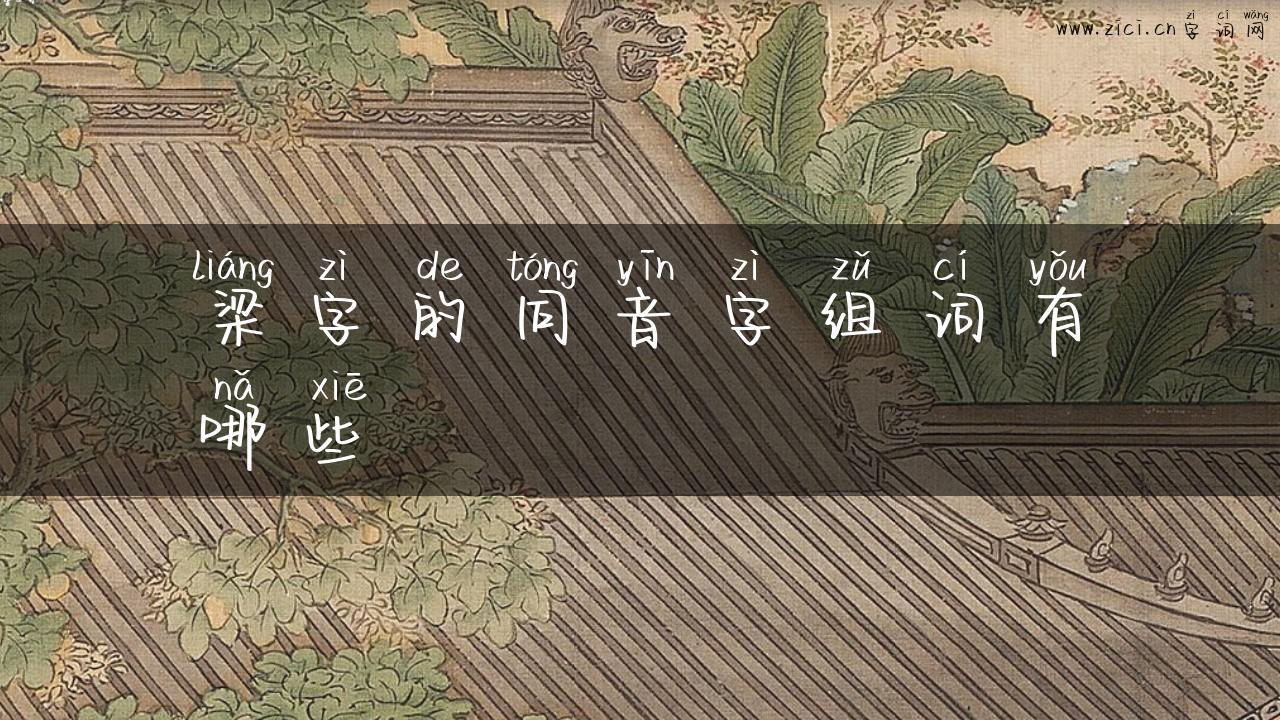 zì cí wǎng
www.zici.cn 字词网
liáng zì de tóng yīn zì zǔ cí yǒu
梁字的同音字组词有
nǎ xiē
哪些